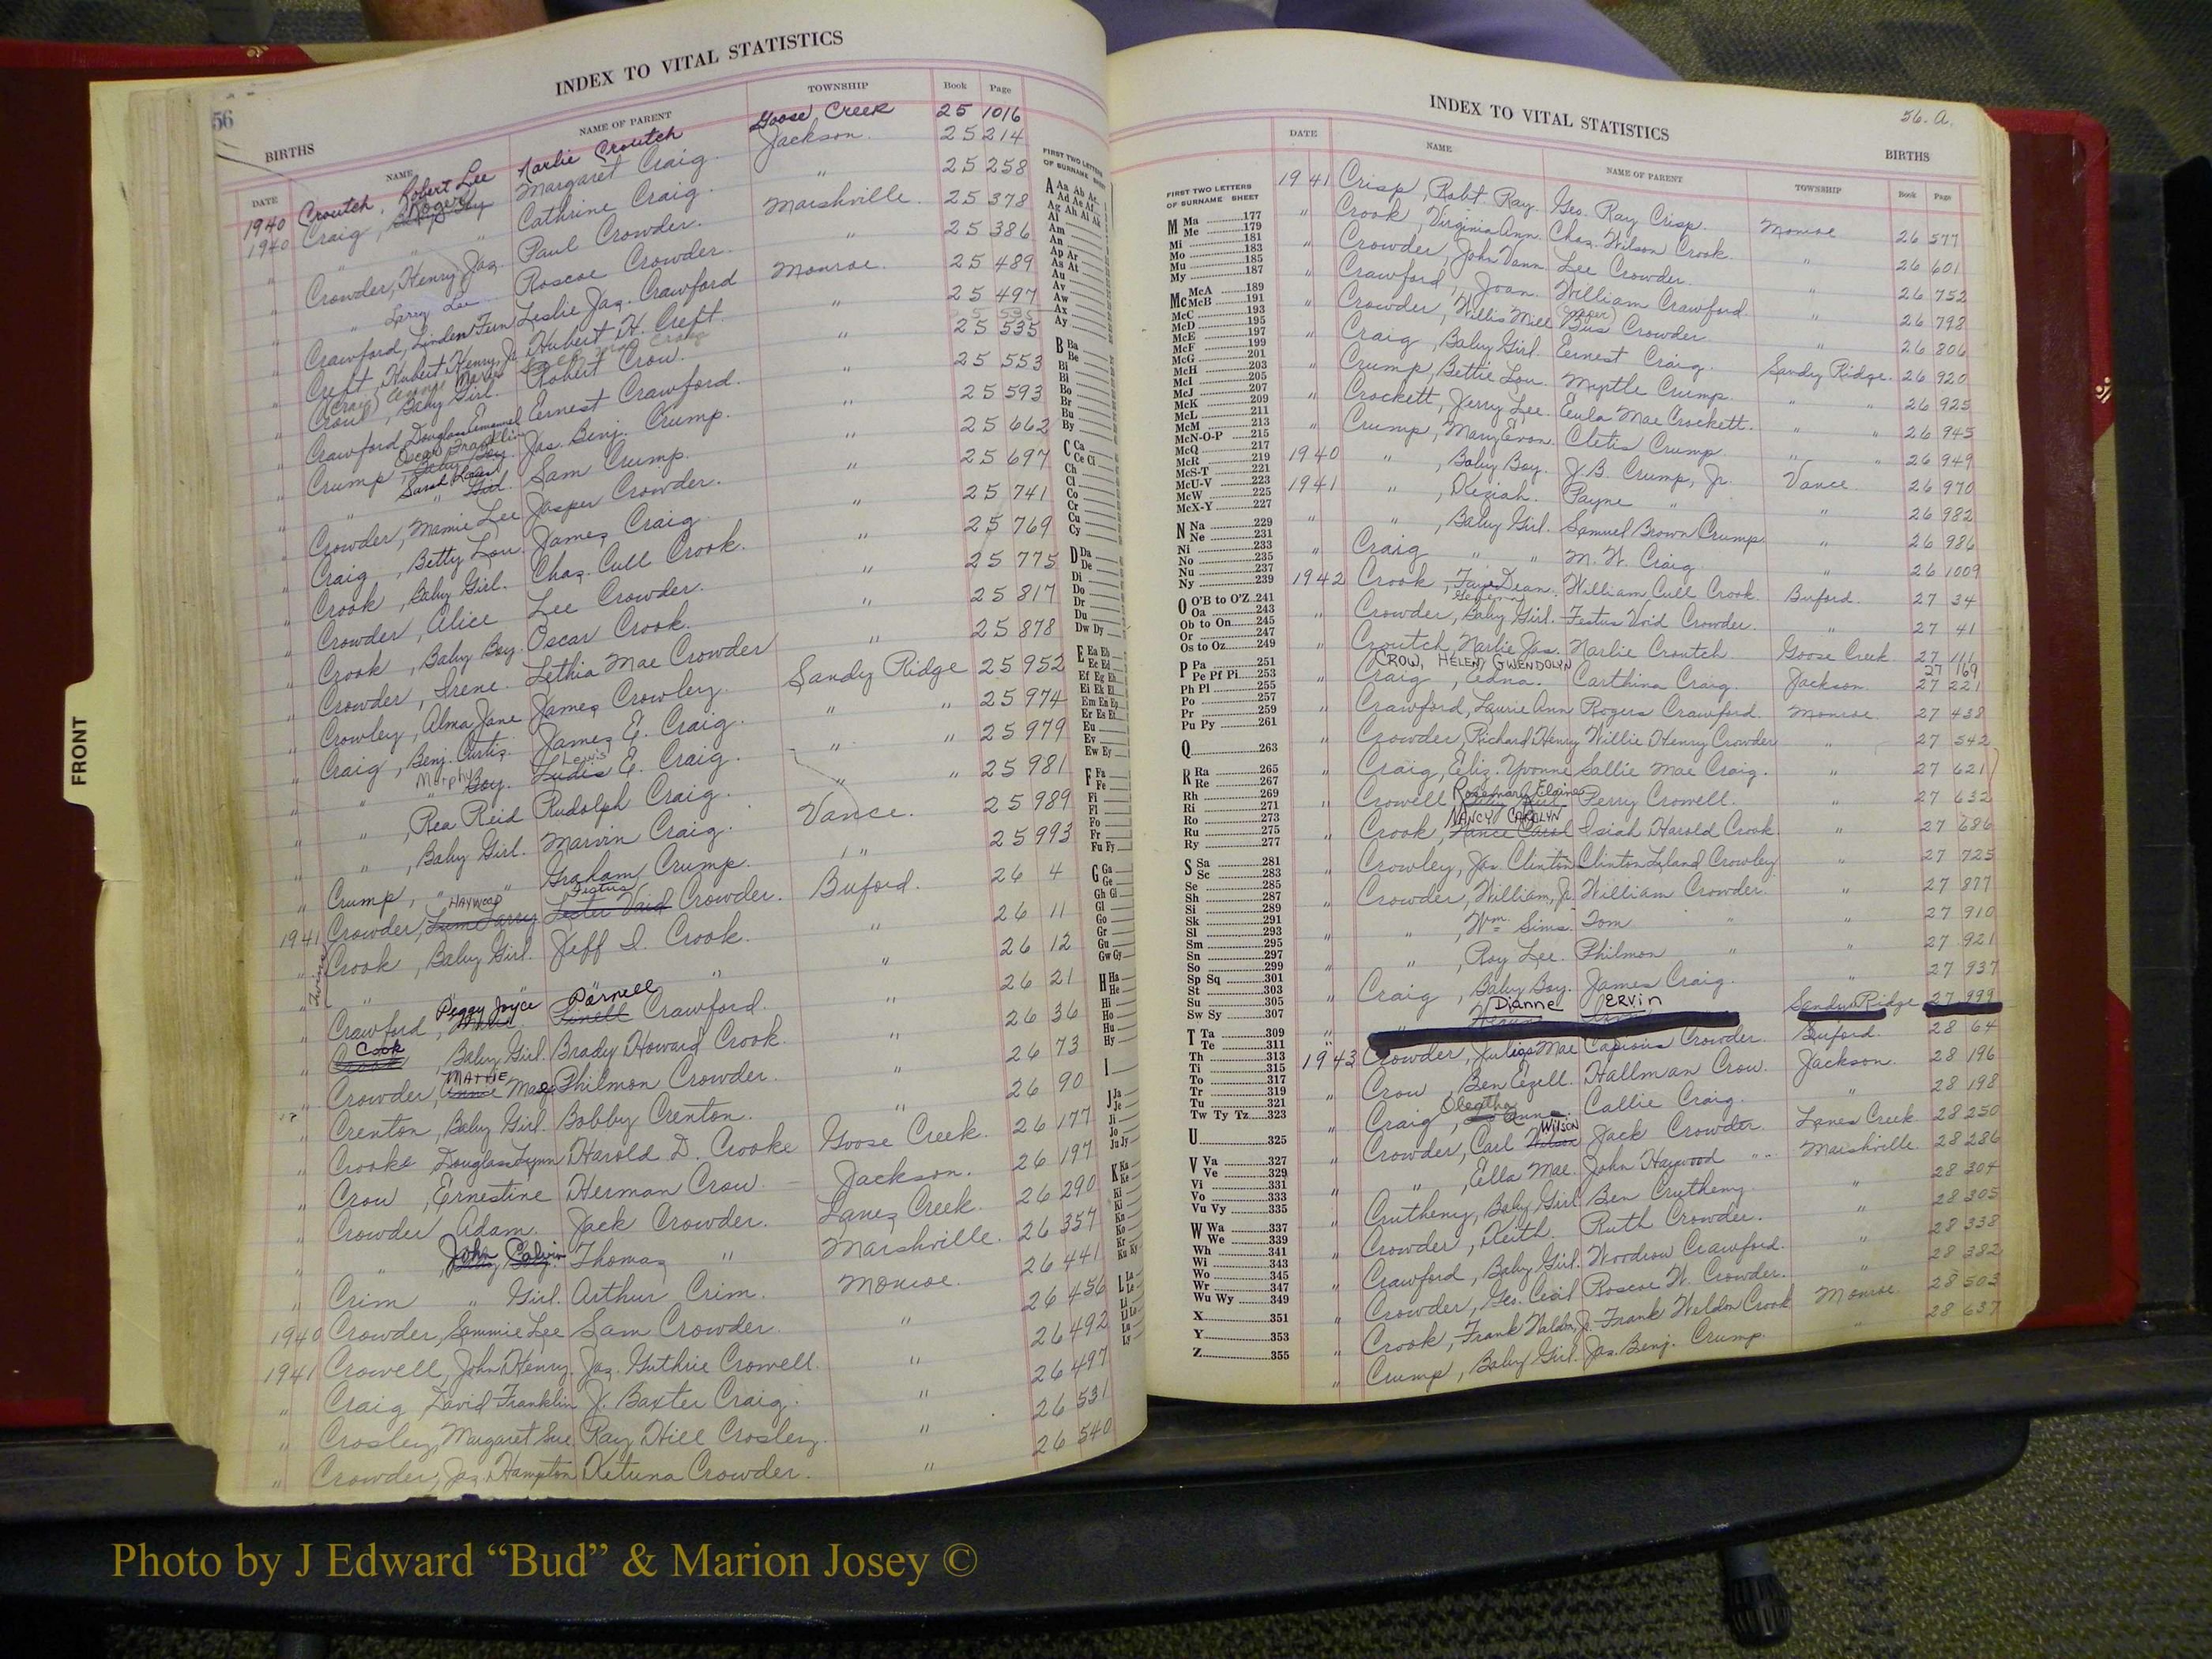 56
INDEX TO VITAL STATISTICS
BIRTHS
DATE NAME NAME OF PARENT TOWNSHIP Book Page
1940 Croutch, Robert Lee Harlie Croutch Goose Creek 25 1016
1940 Craig, Roger Margaret Craig Jackson. 25 214
" " " Cathrine Craig " 25 258
" Crowder, Henry Jas. Paul Crowder. Marshville. 25 378
" " Larry Lee Roscoe Crowder. " 25 386
" Crawford, Linden Fern Leslie Jas. Crawford Monroe. 25 489
" Creft, Hubert Henry, Jr. Hubert H. Creft. " 25 497
" Crow, Baby Girl. Robert Crow. " 25 535
" Crawford, Douglas Emanuel Ernest Crawford. " 25 553
" Crump, Oscar Franklin Jas. Benj. Crump. " 25 593
" " Sarah Girl. Sam Crump. " 25 662
" Crowder, Mamie Lee Jasper Crowder. " 25 697
" Craig, Betty Lou. James Craig. " 25 741
" Crook, Baby Girl. Chas. Cull Crook. " 25 769
" Crowder, Alice Lee Crowder. " 25 775
" Crook, Baby Boy. Oscar Crook. " 25 817
" Crowder, Irene. Lethia Mae Crowder " 25 878
" Crowley, Alma Jane James Crowley. Sandy Ridge 25 952
" Craig, Benj. Curtis. James E. Craig. " " 25 974
" " Murphy Boy. Ludis Lewis E. Craig. " " 25 979
" " , Rea Reid Rudolph Craig. " " 25 981
" " , Baby Girl. Marvin Craig. Vance. 25 989
" Crump, " " Graham Crump. " 25 993
1941 Crowder, HAYWOOD Festus Crowder. Buford. 26 4
" Crook, Baby Girl. Jeff D. Crook. " 26 11
Twins
" " " " " 26 12
" Crawford, Peggy Joyce Parnell Crawford. " 26 21
" Cook, Baby Girl. Brady Howard Crook. " 26 36
" Crowder, MATTIE Mae Philmon Crowder. " 26 73
" Crenton, Baby Girl. Bobby Crenton. " 26 90
" Crooke Douglas Lynn Harold D. Crooke Goose Creek. 26 177
" Crow, Ernestine Herman Crow. Jackson. 26 197
" Crowder Adam. Jack Crowder. Lanes Creek. 26 290
" " , John Calvin Thomas " Marshville. 26 357
" Crim " Girl. Arthur Crim. Monroe. 26 441
1940 Crowder, Sammie Lee Sam Crowder. " 26 456
1941 Crowell, John Henry. Jas. Guthrie Crowell. " 26 492
" Craig David Franklin J. Baxter Craig. " 26 497
" Crosley, Margaret Sue Ray Hill Crosley. " 26 531
" Crowder, Jas. Hampton Ketuna Crowder. " 26 540
FIRST TWO LETTERS
OF SURNAME SHEET
FRONT
56. A.
INDEX TO VITAL STATISTICS
BIRTHS
DATE NAME NAME OF PARENT TOWNSHIP Book Page
1941 Crisp, Robt. Ray. Geo. Ray Crisp. Monroe 26 577
" Crook, Virginia Ann. Chas. Wilson Crook. " 26 601
" Crowder, John Vann. Lee Crowder. " 26 752
" Crawford, Joan. William Crawford. " 26 798
" Crowder, Willis Mill Bus (Casper) Crowder. " 26 806
" Craig, Baby Girl. Earnest Craig. Sandy Ridge. 26 920
" Crump, Bettie Lou. Myrtle Crump. " " 26 925
" Crockett, Jerry Lee. Eula Mae Crockett. " " 26 945
" Crump, Mary Evon. Cletis Crump. " " 26 949
1940 " , Baby Boy. J.B. Crump, Jr. Vance 26 970
1941 " , Keziah. Payne " " 26 982
" " , Baby Girl. Samuel Brown Crump " 26 986
" Craig " " M. W. Craig. " 26 1009
1942 Crook, Dean. William Cull Crook. Buford. 27 34
" Crowder, Baby Girl. Festus Void Crowder. " 27 41
" Croutch, Harlie Jas. Harlie Croutch. Goose Creek 27 111
CROW, HELEN GWENDOLYN 27 169
" Craig, Edna. Carthina Craig. Jackson. 27 221
" Crawford, Laurie Ann Rogers Crawford. Monroe. 27 438
" Crowder, Richard Henry Willie Henry Crowder " 27 542
" Craig, Eliz. Yvonne Sallie Mae Craig. " 27 621
" Crowell, Rosemary Elaine Perry Crowell. " 27 632
" Crook, NANCY CAROLYN Isiah Harold Crook. " 27 686
" Crowley, Jas. Clinton Clinton Leland Crowley. " 27 725
" Crowder, William, Jr. William Crowder. " 27 877
" " , Wm. Sims. Tom " " 27 910
" " , Roy Lee. Philmon " " 27 921
" Craig, Baby Boy. James Craig. " 27 937
" " Dianne ERVIN Sandy Ridge 27 999
1943 Crowder, Mae Crowder. Buford. 28 64
" Crow, Ben Ezell. Hallman Crow. Jackson. 28 196
" Craig, Oleatha Callie Craig. " 28 198
" Crowder, Carl Wilson Jack Crowder. Lanes Creek 28 250
" " , Ella Mae. John Haywood " " Marshville 28 286
" Crutheny, Baby Girl Ben Crutheny. " 28 304
" Crowder, Keith. Ruth Crowder. " 28 305
" Crawford, Baby Girl. Woodrow Crawford. " 28 338
" Crowder, Geo. Cecil Roscoe W. Crowder. " 28 382
" Crook, Frank Waldon, Jr. Frank Weldon Crook Monroe. 28 503
" Crump, Baby Girl. Jas. Benj. Crump. " 28 637
FIRST TWO LETTERS
OF SURNAME SHEET
M Ma 177
Me 179
Mi 181
Mo 183
Mu 185
My 187
Mc McA 189
McB 191
McC 193
McD 195
McE 197
McF 199
McG 201
McH 203
McI 205
McJ 207
McK 209
McL 211
McM 213
McN-O-P 215
McQ 217
McR 219
McS-T 221
McU-V 223
McW 225
McX-Y 227
N Na 229
Ne 231
Ni 233
No 235
Nu 237
Ny 239
O O'B to O'Z 241
Oa 243
Ob to On 245
Or 247
Os to Oz 249
P Pa 251
Pe Pf Pi 253
Ph Pl 255
Po 257
Pr 259
Pu Py 261
Q 263
R Ra 265
Re 267
Rh 269
Ri 271
Ro 273
Ru 275
Ry 277
S Sa 281
Sc 283
Se 285
Sh 287
Si 289
Sk 291
Sl 293
Sm 295
Sn 297
So 299
Sp Sq 301
St 303
Su 305
Sw Sy 307
T Ta 309
Te 311
Th 313
Ti 315
To 317
Tr 319
Tu 321
Tw Ty Tz 323
U 325
V Va 327
Ve 329
Vi 331
Vo 333
Vu Vy 335
W Wa 337
We 339
Wh 341
Wi 343
Wo 345
Wr 347
Wu Wy 349
X 351
Y 353
Z 355
Photo by J Edward “Bud” & Marion Josey ©